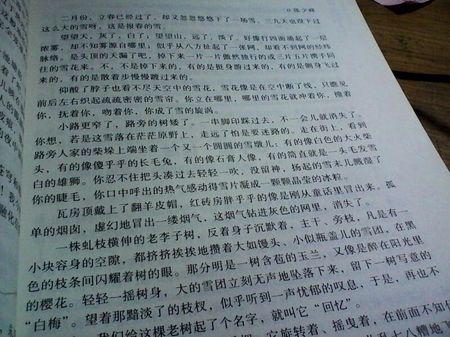 张少峰
二月份，立春已经过了，却又忽忽悠悠下了一场雪，三九天也没下过
这么大的雪呀，这是报春的雪。
望望天，灰了；白了；望望山，远了，淡了，好像有四面涌起了一层
浓雾，却不知雾源自哪里；似乎从八方扯起了一张网，却看不到网的经纬
脉络。是头顶的天漏了吧，掉下来一片一片傲然独行的或三片五片携手同
往的雪花来。不，不是掉下来的，有的是挺身蹭过来的，有的是侧身飞过
来的，有的是散着步慢慢踱过来的。
仰酸了脖子也看不尽天空中的雪花，雪花像是在空中断了线，只能见
前后左右织起疏疏密密的雪帘。你立在哪里，哪里的雪花就冲着你，撩着
你，抚着你，吻着你，你成了雪的旋涡。
小路更窄了，路旁的树矮了。一串脚印踩过去，不一会儿就消失了。
你想，若是这雪落在茫茫原野上，走远了怕是要迷路的。走在街上，看到
路旁人家的柴垛上端坐着一个又一个圆圆的雪墩儿；有的像白色的大火柴
头，有的像傻乎乎的长毛兔，有的像石膏人像，有的简直就是一头毛发雪
白的雄狮。你忍不住把头凑过去轻轻一吹，没留神，扬起的雪末儿溅湿了
你的睫毛，你口中呼出的热气感动得雪片凝成一颗颗晶莹的冰粒。
瓦房顶戴上了翻羊皮帽，红砖房胖乎乎的像是刚从童话里冒出来，孤
单的烟囱，虚幻地冒出一缕烟气，这烟气钻进灰色的网里，消失了。
一株虬枝横伸的老李子树，反着身子沉默着，主干、旁枝，凡是有一
小块容身的空隙，都挤挤挨挨地攒着大如馒头、小似瓶盖儿的雪团，在黑
色的枝条间闪耀着树的眼。那分明是一树含苞的玉兰，又像是醉在阳光里
的樱花。轻轻一摇树身，大的雪团立刻无声地坠落下来，留下一树写意的
“白梅”。望着那黯淡了的枝杈，似乎听到一声忧郁的叹息，于是，再也不
我们给这棵老树起了个名字，就叫它“回忆”。
它旋转着、摇曳着，在前面不知什